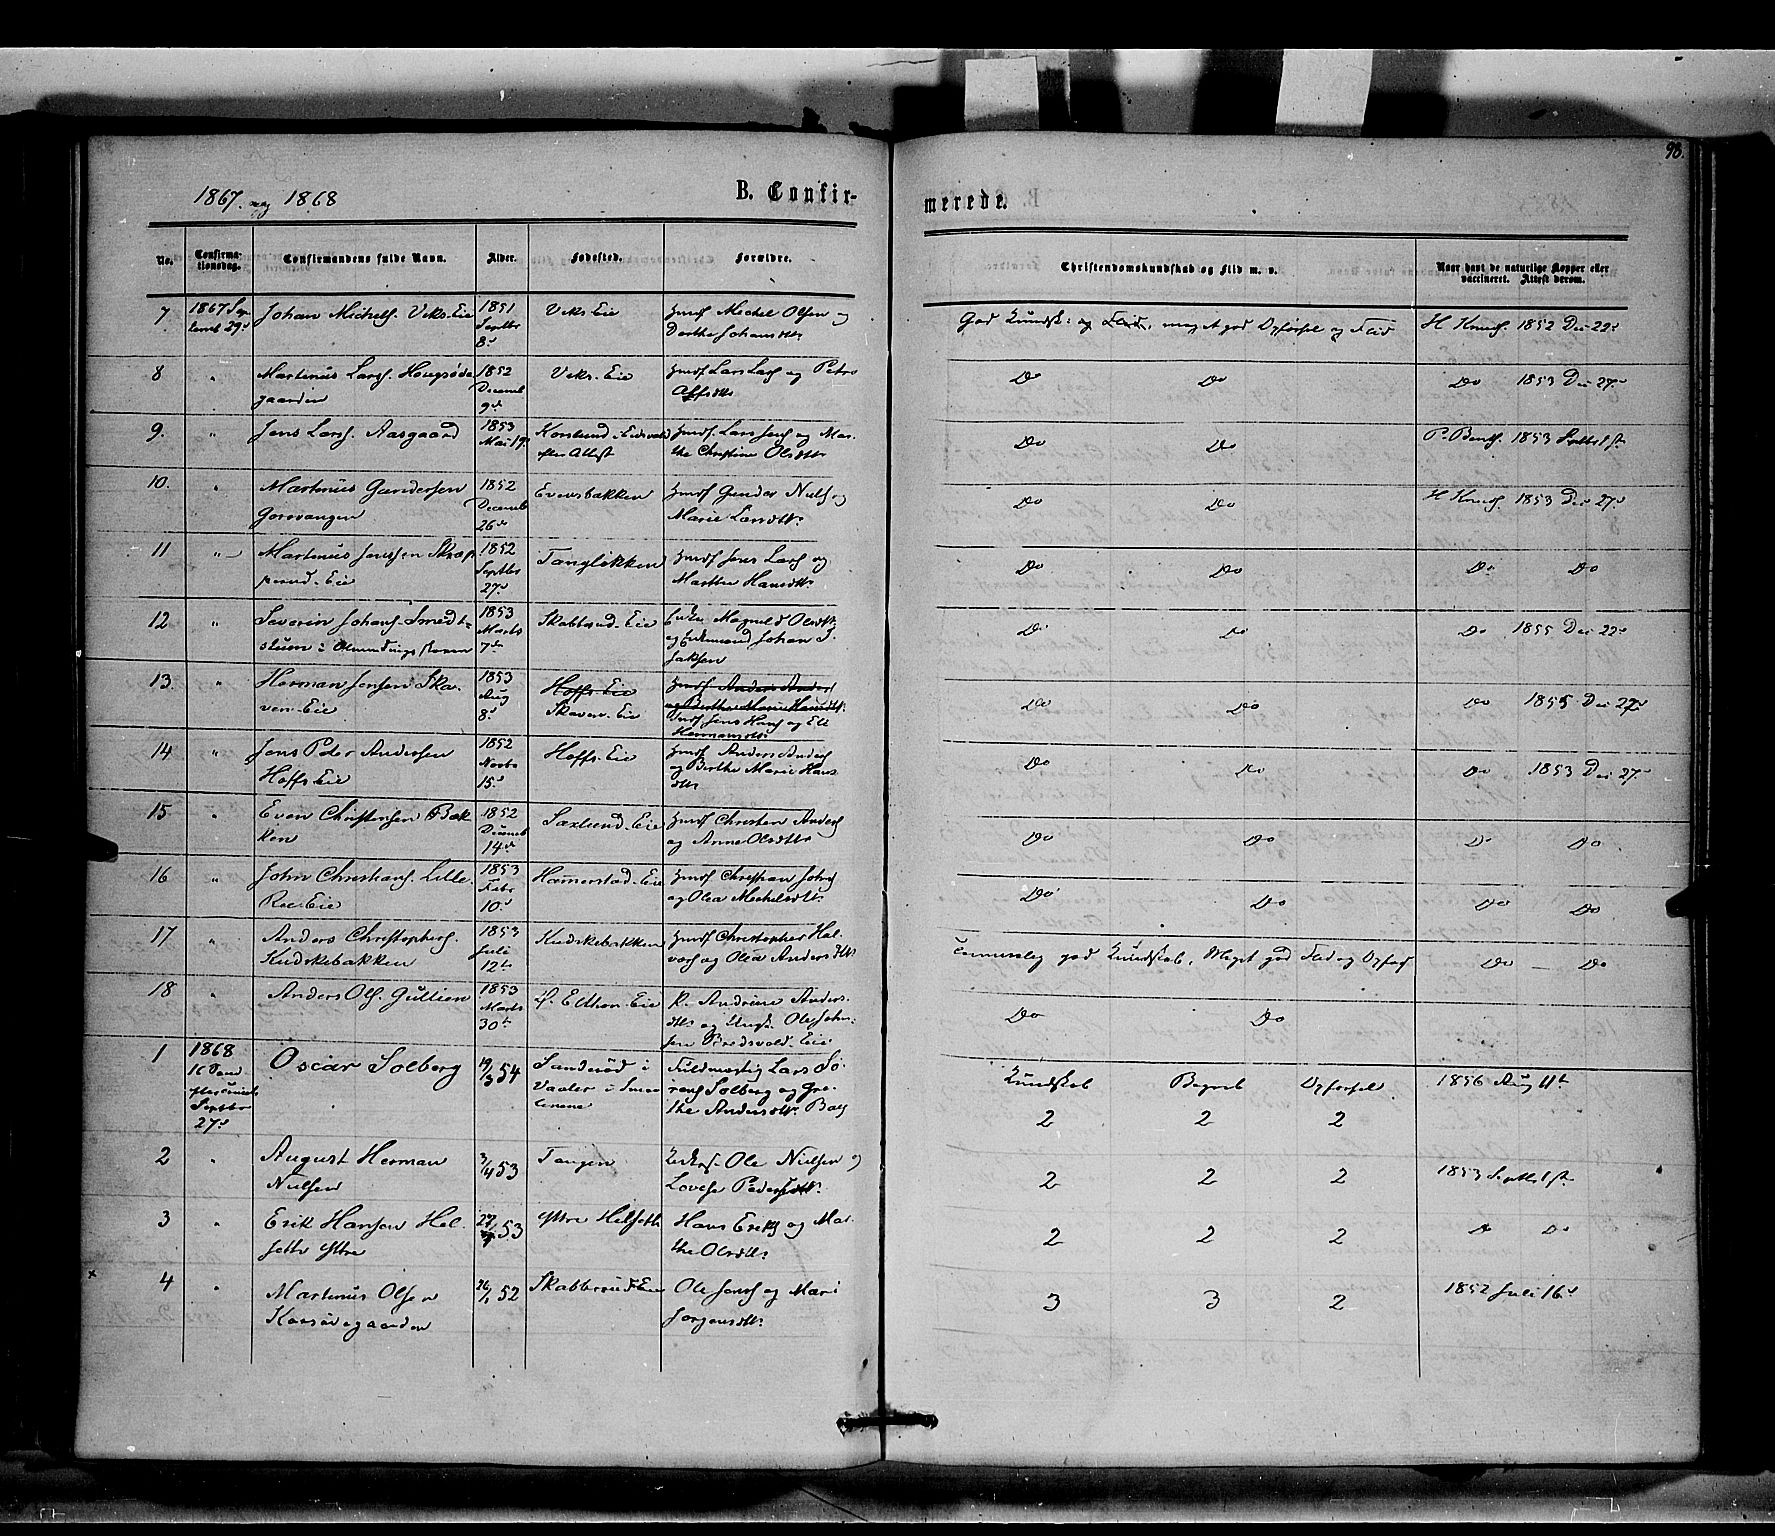 98.
1867. og 1868
B. Confir-
merede.
No.
Confirma-
tionsdag.
Confirmandens fulde Navn.
Alder.
Fødested.
Forældre.
Christendomskundskab og Flid m. v.
Naar havt de naturlige Kopper eller
vaccineret. Attest derom.
7
1867 Sep
temb 29d
Johan Michels. Viks-Eie
1851
Septbr
8d
Viks Eie
Hmd Mechel Olsen og
Dorthe Johansdtr
God Kundsk: og Flid, meget god Opførsel og Flid
H Knuds. 1852 Dec 22d
8
"
Martinus Lars. Haugsøde
gaarden
1852
Decemb
9d
Viks. Eie
Hmd Lars Lars og Petro
Do
Do
Do 1853 Dec 27d
9.
"
Jens Lars. Aasgaard
1853
Mai 19
Korslund Eidsvold
efter Attest
Hmd. Lars Jens og Mar-
the Christine Olsdtr
Do
Do
P. Bents. 1853 Septbr 1st
10.
"
Martinus Gundersen
Gorsvangen
1852
Decemb
26de
Evensbakken
Hmd Gunder Niels og
Marie Larsdtr
Do
Do
H Knuds. 1853 Dec 27d
11
"
Martinus Jenssen Skræp
perud-Eie
1852
Septbr
27d
Tangløkken
Hmd Jens Lars og
Marthe Hansdtr
Do
Do
Do Do
12
"
Severin Johans. Smedt-
stuen i
1853
Marts
7de
Skabberud-Eie
Enke Magnild Olsdtr
og Enkemand Johan I-
saksen
Do
Do
Do 1855 Dec 22d
13.
"
Herman Jensen Ska-
ven-Eie
1853
Aug
8d
Hoffs-Eie
Skaven-Eie
Hmd Anders Anders
og Berthe Marie Hansdtr
Hmd Jens Hans og Eli
Hermansdtr
Do
Do
Do 1855 Dec 27d
14
"
Jens Peder Andersen
Hoffs-Eie
1852
Novbr
15d
Hoffs-Eie
Hmd Anders Anders
og Berthe Marie Hans
dtr
Do
Do
Do 1853 Dec 27d
15
"
Even Christensen Bak-
ken
1852
Decemb
14d
Saxlund-Eie
Hmd Christen Anders
og Anne Olsdtr
Do
Do
Do Do
16
"
John Christians. Lille-
Roe-Eie
1853
Febr
10d
Hamerstad-Eie
Hmd Christian Johns
og Olea Mechelsdtr
Do
Do
Do Do
17
"
Anders Christophers.
Kudskebakken
1853
Juli
12te
Kudskebakken
Hmd Christopher Hal-
vors og Olea Andersdtr
god Kundskab, Meget god Flid og Opførs
Do Do
18
"
Anders Ols. Gullien
1853
Marts
30te
Ø. Elthon-Eie
P. Andrine Anders-
dtr og Ungk. Ole John-
sen Bredsvold-Eie
Do
Do
1
1868
16 Sønd
efter Trinit
Septbr
27d
Oscar Solberg
19/3 54
Sanderød i
Vaaler i Smaa-
lenene
Fuldmægtig Lars Sø-
rens Solberg og Gre-
the Andersdtr Bolg
Kundskab
2
Begreb
2
Opførsel
2
1856 Aug 11te
2
"
August Herman
Nielsen
3/4 53
Tangen
Ole Nielsen og
Lovise Pedersdtr
2
2
2
1853 Septbr 1ste
3
"
Erik Hansen Hel-
seth Ytre
53
Ytre Helseth
Hans Eriks og Mar-
the Olsdtr
2
2
2
Do Do
×
4
"
Martinus Olsen
Korsødegaarden
26/1 52
Skabberud-Eie
Ole Jens og Mari
Jørgensdtr
3
3
2
1852 Juli 16d